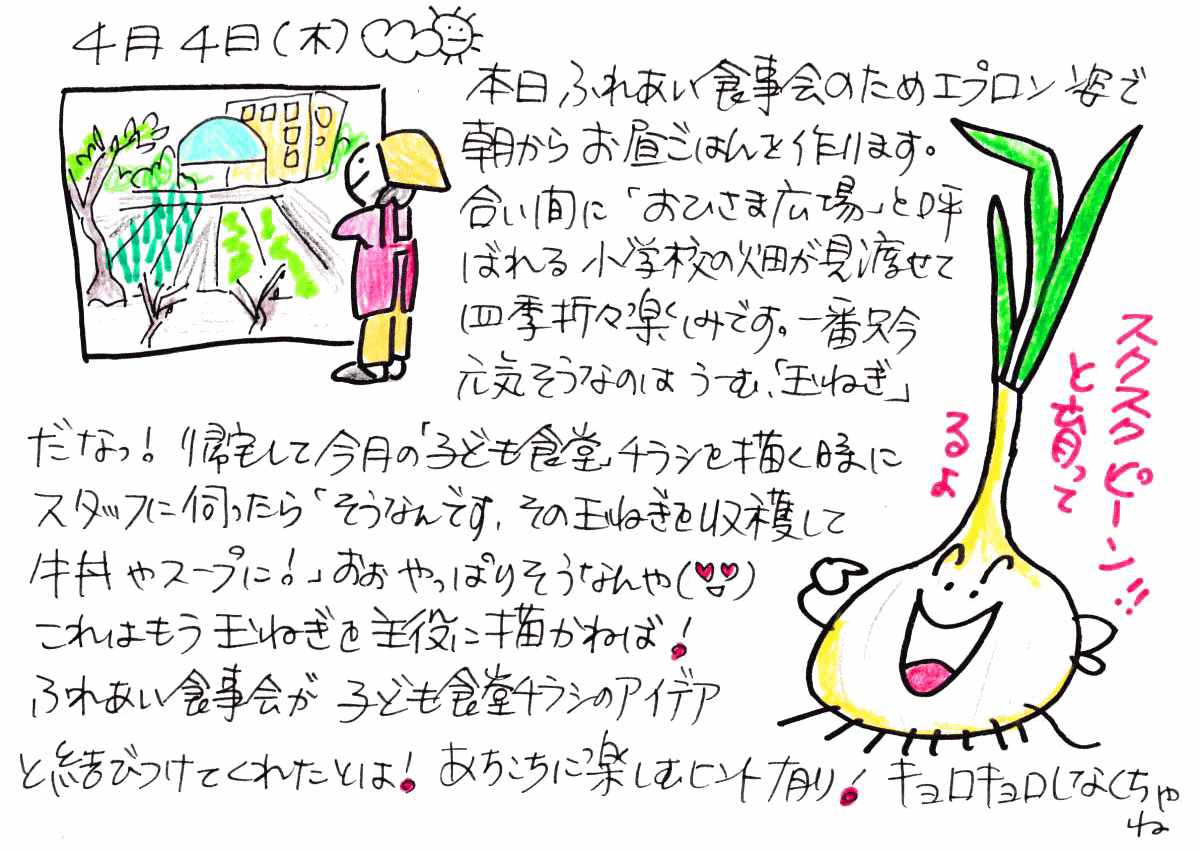 4月4日(木)
本日ふれあい食事会のためエプロン姿で
朝からお昼ごはんを作ります。
合い間に「おひさま広場」と呼
ばれる小学校の畑が見渡せて
四季折々楽しみです。一番只今
元気そうなのはうーむ、「玉ねぎ」
だなっ!帰宅して今月の「子ども食堂」チラシを描く時に
スタッフに伺ったら「そうなんです、その玉ねぎを収穫して
牛丼やスープに!」おおやっぱりそうなんや
これはもう玉ねぎを主役に描かねば!
ふれあい食事会が子ども食堂チラシのアイデア
と結びつけてくれたとは!あちこちに楽しむヒント有り!キョロキョロしなくちゃ
ね
スクスクピーン!!
と育って
るよ